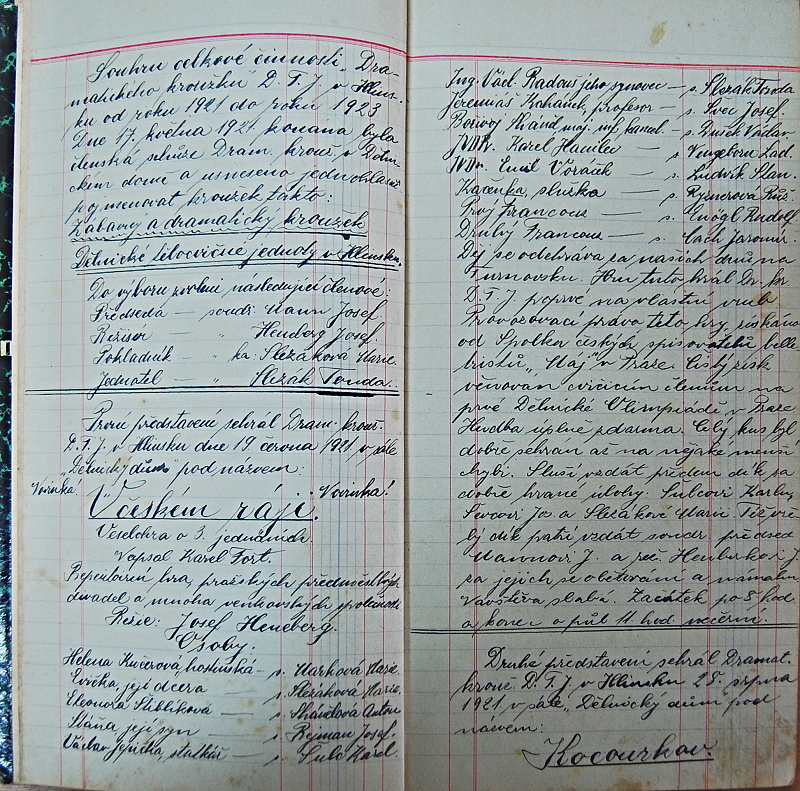 Souhrn celkové činnosti „Dra-
matického kroužku" D. T. J. v Hlins-
ku od roku 1921 do roku 1923
Dne 17. května 1921 konána byla
členská schůze Dram. krouž. v Děln-
ckém domě a usneseno jednohlasně
pojmenovat kroužek takto:
Zábavný a dramatický kroužek
Dělnické tělocvičné jednoty v Hlinsku.
Do výboru zvoleni následující členové:
Předseda — soudr. Mann Josef
Režisér — „ Heneberg Josef
Pokladník — „ ka. Slezáková Marie.
Jednatel — „ Slezák Tonda.
První představení sehrál Dram. krouž.
D. T. J. v Hlinsku dne 19. června 1921, v sále
„Dělnický dům" pod názvem:
Novinka! Novinka!
V českém ráji.
Veselohra o 3. jednáních.
Napsal Karel Fořt.
Repertoirní hra pražských předměstských
divadel a mnoha venkovských společností
Režie: Josef Heneberg.
Osoby.
Helena Kučerová, hostinská — s. Marková Marie.
Evička, její dcera — s. Slezáková Marie.
Eleonora Stiblíková — s. Anton
Sláňa, její syn — s. Rejman Josef.
Václav Jepička, statkář — s. Šulc Karel.
Ing. Václ. Radouš jeho synovec — s. Slezák Tonda
Jeremiáš Kohánek, profesor — s. Švec Josef.
Bořivoj maj. inf. kancel. — s. Václav.
JUDr. Karel Havílec — s. Lad.
JUDr. Emil Voráček — s. Ludvík Stan.
Kačenka, služka — s. Rymerová Růž.
Prvý Francouz — s. Rudolf.
Druhý Francouz — s. Čach Jaromír.
Děj se odehrává za našich dnů na
Turnovsku. Hru tuto hrál Dr. kr.
D. T. J. poprvé na vlastní vrub
Provozovací právo této hry, získáno
od Spolku českých spisovatelů belle-
tristů „Máj" v Praze. Čistý zisk
věnován cvičícím členům na
prvé Dělnické Olimpiádě v Praze
Hudba úplně zdarma. Celý kus byl
dobře sehrán až na nějaké menší
chyby. Sluší vzdát předem dík za
dobře hrané úlohy: Šulcovi Karlovi,
Švecovi Jos. a Slezákové Marii. Též vře-
lý dík patří vzdát soudr. předsed.
Mannovi J. a rež. Heneberkovi J.
za jejich se obětování a námahu
Návštěva slabá. Začátek po 8 hod
a konec o půl 11 hod večerní.
Druhé představení sehrál Dramat.
krouž. D. T. J. v Hlinsku 28. srpna
1921 v sále „Dělnický dům" pod
názvem:
Kocourkov.